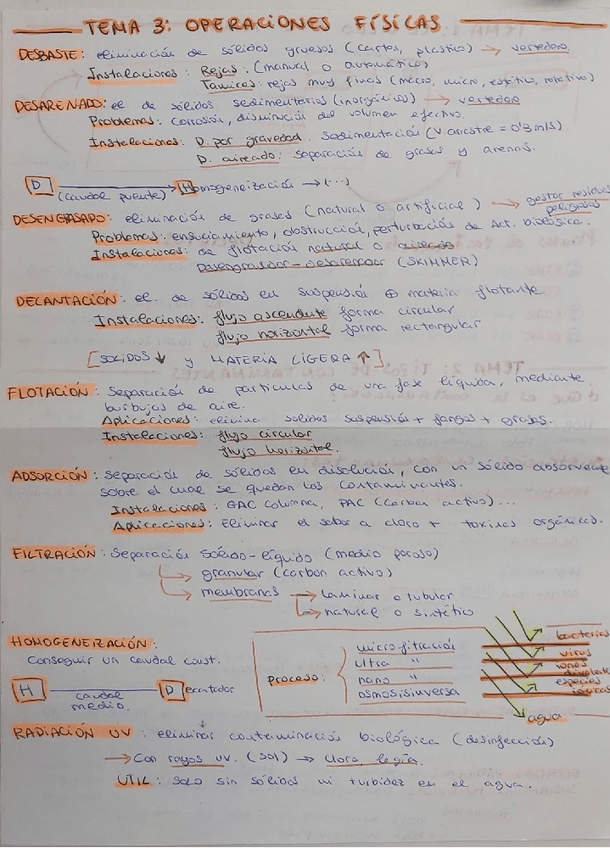 TEMA 3: OPERACIONES FÍSICAS
DESBASTE: eliminación de sólidos gruesos (cartos, plástico) → vertedero
Instalaciones: Rejas: (manual o automático)
Tamices: rejas muy finas (macro, micro, estático, rotativo)
DESARENADO: el de sólidos sedimentarios (inorgánicos) → vertedero
Problemas: corrosión, disminución del volumen efectivo.
Instalaciones: D. por gravedad. Sedimentación (V arrastre = 0'3 m/s)
D. aireado: separación de grasas y arenas.
D → Homogeneización → (...)
(caudal puente)
DESENGRASADO: eliminación de grasas (natural o artificial) → gestor residuos peligrosos
Problemas: ensuciamiento, obstrucción, perturbación de Act. biológica.
Instalaciones: de flotación natural o aireados
Desengrasador-Desarenador (SKIMMER)
DECANTACIÓN: el. de sólidos en suspensión ⊕ materia flotante
Instalaciones: flujo ascendente forma circular
flujo horizontal forma rectangular
[SOLIDOS ↓ y MATERIA LIGERA ↑]
FLOTACIÓN: Separación de partículas de una fase líquida, mediante
burbujas de aire.
Aplicaciones: elimina solidos suspensión + fangos + grasas.
Instalaciones: flujo circular
flujo horizontal
ADSORCIÓN: Separación de sólidos en disolución, con un sólido absorvente
sobre el cual se quedan los contaminantes.
Instalaciones: GAC columna, PAC (carbon activo)...
Aplicaciones: Eliminar el sabor a cloro + toxinas orgánicas.
FILTRACIÓN: Separación Sólido-líquido (medio poroso)
→ granular (carbón activo)
→ membranas → laminar o tubular
→ natural o sintético
HOMOGENEIZACIÓN:
Conseguir un caudal const.
H caudal medio. Decantador
Proceso: microfiltración
ultra "
nano "
osmosis inversa
bacterias
virus
iones
especies iónicas
agua
RADIACIÓN UV: eliminar contaminación biológica (desinfección)
→ Con rayos uv. (sol) → cloro, legía.
UTIL: solo sin sólidos ni turbidez en el agua.